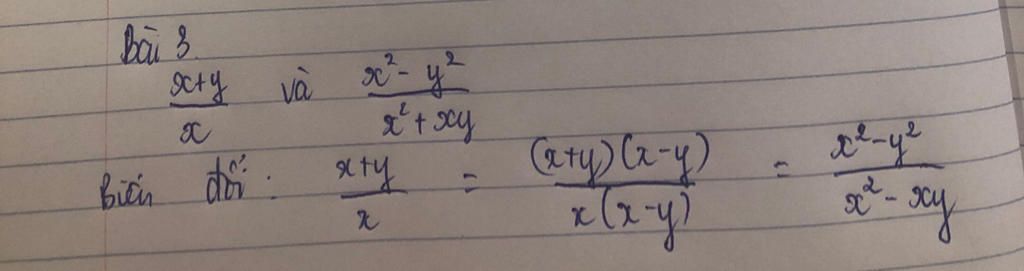 Bài 3.
(x+y)/x và (x² - y²)/(x² + xy)
Biến đổi: (x+y)/x = ((x+y)(x-y))/(x(x-y)) = (x² - y²)/(x² - xy)